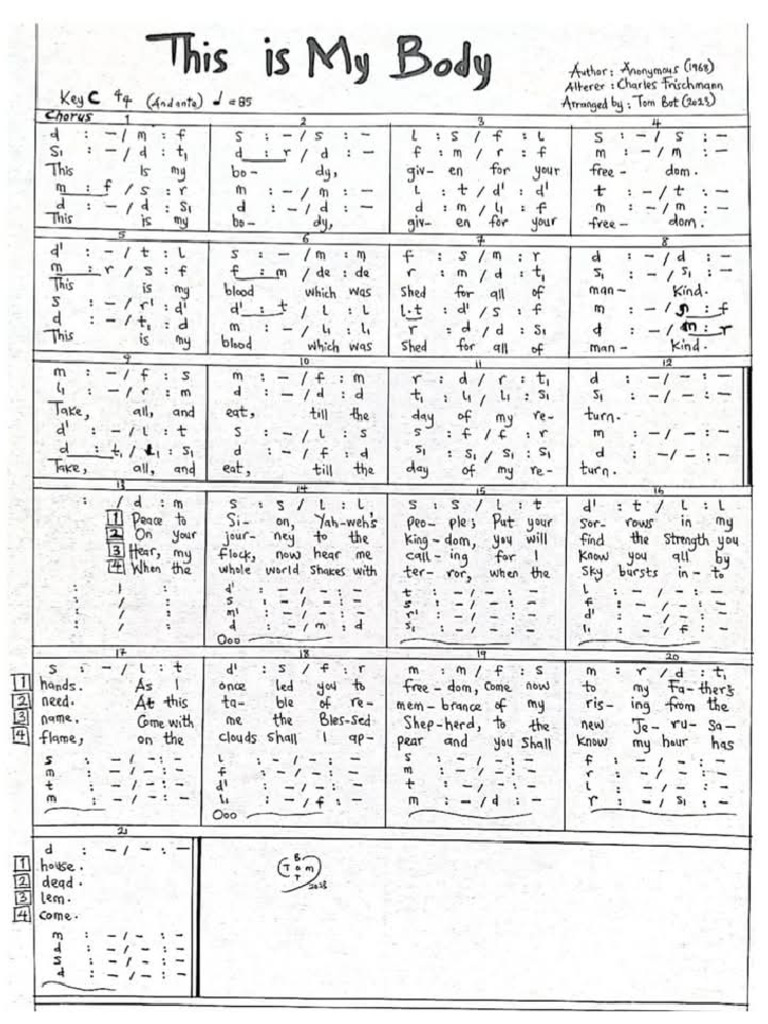 This is My Body
Author: Anonymous (1968)
Alterer: Charles Frischmann
Arranged by: Tom Bot (2023)
Key C 4/4 (Andante) ♩=85
Chorus 1 2 3 4
d : - / m : f | s : - / s : - | l : s / f : l | s : - / s : -
s₁ : - / d : t₁ | d : r / d : - | f : m / r : f | m : - / m : -
This is my | bo- dy, | giv- en for your | free- dom.
m : f / s : r | m : - / m : - | l : t / d' : d' | t : - / t : -
d : - / d : s₁ | d : - / d : - | d : m / l₁ : f | m : - / m : -
This is my | bo- dy, | giv- en for your | free- dom.
5 6 7 8
d' : - / t : l | s : - / m : m | f : s / m : r | d : - / d : -
m : r / s : f | f : m / de : de | r : m / d : t₁ | s₁ : - / s₁ : -
This is my | blood which was | shed for all of | man- kind.
s : - / r' : d' | d' : t / l : l | l.t : d' / s : f | m : - / : f
d : - / t₁ : d | m : - / l₁ : l₁ | r : d / d : s₁ | d : - / m : r
This is my | blood which was | shed for all of | man- kind.
9 10 11 12
m : - / f : s | m : - / f : m | r : d / r : t₁ | d : - / - : -
l₁ : - / r : m | d : - / d : d | t₁ : l₁ / l₁ : s₁ | s₁ : - / - : -
Take, all, and | eat, till the | day of my re- | turn.
d' : - / l : t | s : - / l : s | s : f / f : r | m : - / - : -
d : t₁ / l₁ : s₁ | d : - / f : d | s₁ : s₁ / s₁ : s₁ | d : - / - : -
Take, all, and | eat, till the | day of my re- | turn.
13 14 15 16
: / d : m | s : s / l : l | s : s / l : t | d' : t / l : l
1 Peace to | Si- on, Yah-weh's | peo- ple; Put your | sor- rows in my
2 On your | jour- ney to the | king- dom, you will | find the strength you
3 Hear, my | flock, now hear me | call- ing for I | know you all by
4 When the | whole world shakes with | ter- ror, when the | sky bursts in- to
: / : | d' : - / - : - | t : - / - : - | l : - / - : -
: / : | s : - / - : - | s : - / - : - | f : - / - : -
: / : | m' : - / - : - | r' : - / - : - | d' : - / - : -
: / : | d : - / m : d | s₁ : - / - : - | l₁ : - / f : -
Ooo
17 18 19 20
s : - / l : t | d' : s / f : r | m : m / f : s | m : r / d : t₁
1 hands. As I | once led you to | free- dom, come now | to my Fa- ther's
2 need. At this | ta- ble of re- | mem- brance of my | ris- ing from the
3 name. Come with | me the Bles-sed | Shep-herd, to the | new Je- ru- sa-
4 flame, on the | clouds shall I ap- | pear and you shall | know my hour has
s : - / - : - | l : - / - : - | s : - / - : - | f : - / - : -
m : - / - : - | f : - / - : - | m : - / - : - | r : - / - : -
t : - / - : - | d' : - / - : - | t : - / - : - | l : - / - : -
m : - / - : - | l₁ : - / f : - | m : - / d : - | r : - / s₁ : -
Ooo
21
d : - / - : -
1 house.
2 dead.
3 lem.
4 come.
m : - / - : -
d : - / - : -
s : - / - : -
d : - / - : -
Bot
Tom
2023